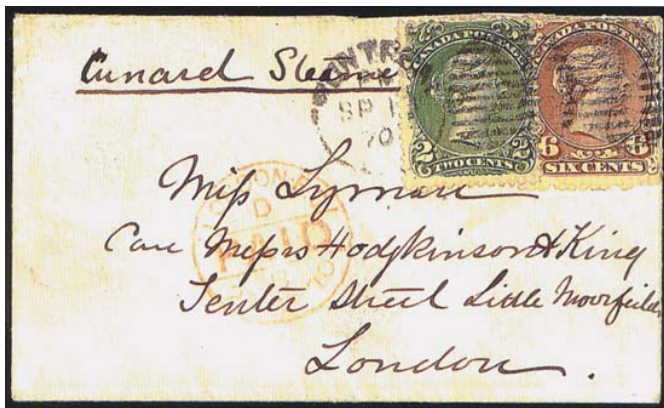 Cunard Steame
MONTR
SP 1
70
CANADA POSTAGE
2 2
TWO CENTS
CANADA POSTAGE
6 6
SIX CENTS
Miss Lyman
LONDON
D
PAID
Care Messrs Hodgkinson & King
Tenter Street Little Moorfields
London.